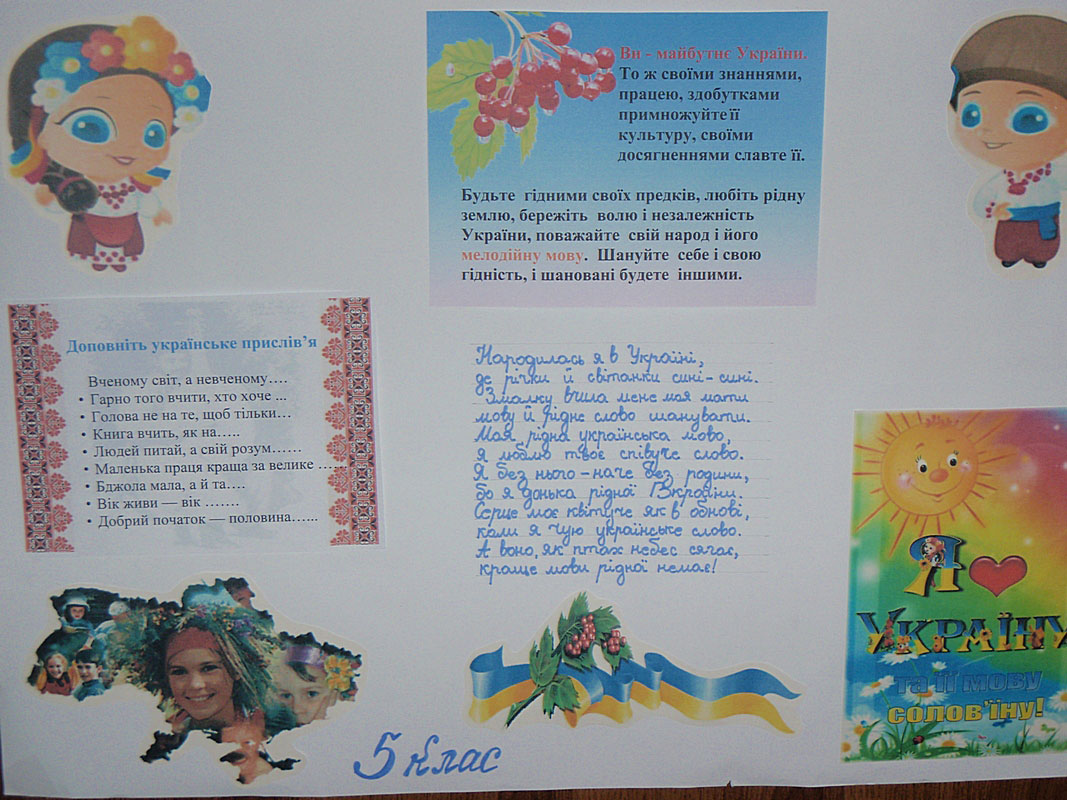 Ви - майбутнє України.
То ж своїми знаннями,
працею, здобутками
примножуйте її
культуру, своїми
досягненнями славте її.
Будьте гідними своїх предків, любіть рідну
землю, бережіть волю і незалежність
України, поважайте свій народ і його
мелодійну мову. Шануйте себе і свою
гідність, і шановані будете іншими.
Доповніть українське прислів’я
Вченому світ, а невченому….
• Гарно того вчити, хто хоче ...
• Голова не на те, щоб тільки…
• Книга вчить, як на…..
• Людей питай, а свій розум……
• Маленька праця краща за велике ……
• Бджола мала, а й та….
• Вік живи — вік …….
• Добрий початок — половина…...
Народилась я в Україні,
де річки й світанки сині-сині.
Змалку вчила мене моя мати
мову й рідне слово шанувати.
Моя рідна українська мово,
я люблю твоє співуче слово.
Я без нього-наче без родини,
бо я донька рідної Вкраїни.
Серце моє квітуче як в обнові,
коли я чую українське слово.
А воно, як птах небес сягає,
краще мови рідної немає!
Я
УКРАЇНУ
та її мову
солов'їну!
5 клас